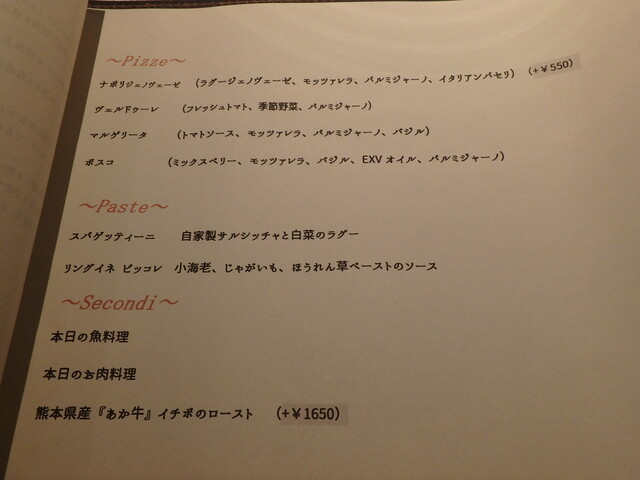 ～Pizze～
ナポリジェノヴェーゼ （ラグージェノヴェーゼ、モッツァレラ、パルミジャーノ、イタリアンパセリ） （+￥550）
ヴェルドゥーレ （フレッシュトマト、季節野菜、パルミジャーノ）
マルゲリータ （トマトソース、モッツァレラ、パルミジャーノ、バジル）
ボスコ （ミックスベリー、モッツァレラ、バジル、EXVオイル、パルミジャーノ）
～Paste～
スパゲッティーニ 自家製サルシッチャと白菜のラグー
リングイネ ピッコレ 小海老、じゃがいも、ほうれん草ペーストのソース
～Secondi～
本日の魚料理
本日のお肉料理
熊本県産『あか牛』イチボのロースト （+￥1650）